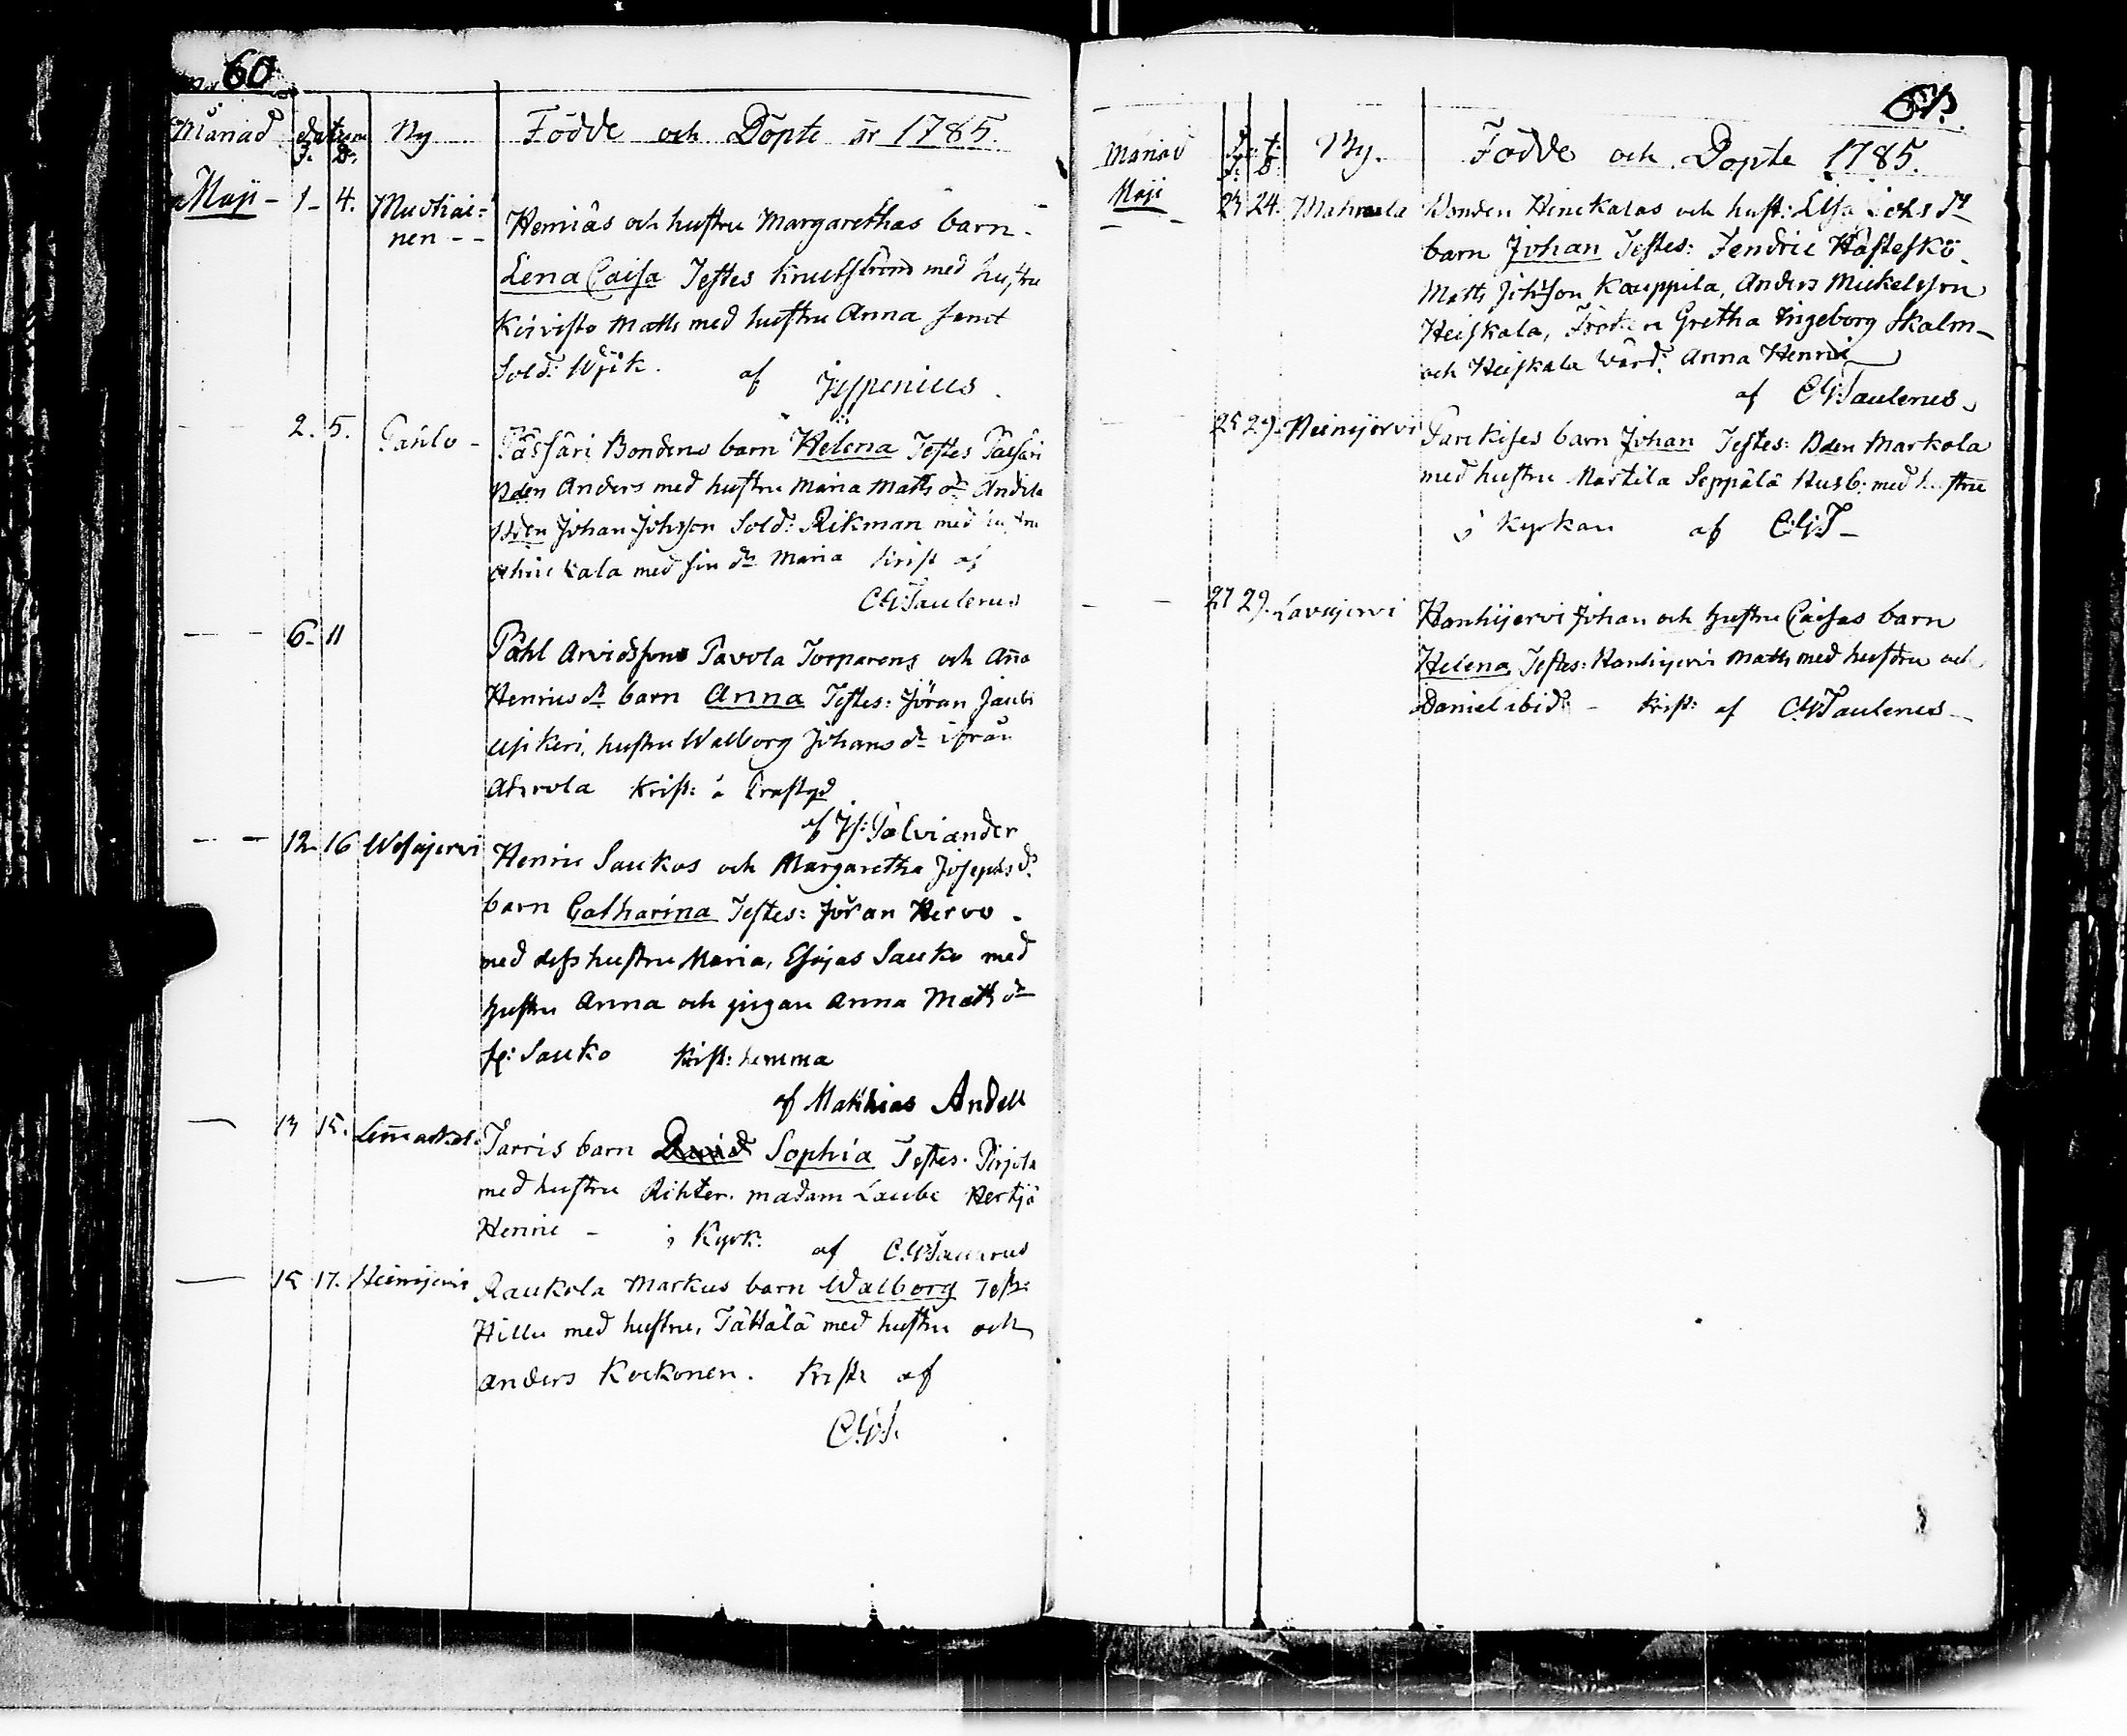 60
Månad datum By Födde och Döpte år 1785.
F. D.
Maji - 1 - 4. Mustiai=
nen - - Hemiäs och hustru Margarethas barn
Lena Caisa Testes Knutström med hustru
Matts med hustru Anna samt
Sold: Wijk. af Jesspenius.
2. 5. Påhlo - Bondens barn Helena Testes
Bden Anders med hustru Maria Matts dr
Bden Johan Johsson Sold: Rikman med hustru
med sin dr Maria Krist af
C.G: Taulerus
6 - 11 Påhl Arvidssons Pavola Torparens och Aña
Henrics dr barn Anna Testes: Jöran
hustru Walborg Johans dr ifrån
Ahvola Krist: i
af Js: Palviander
12 - 16 Wesajervi Henric Saukos och Margaretha Josephs dr
barn Catharina Testes: Jöran Hervo
med dess hustru Maria, Esajas Sauko med
hustru Anna och pigan Anna Matts dr
Sauko Krist: hemma
af Matthias Andell
13 15. Jarris barn David Sophia Testes. Pirjola
med hustru Rihter. madam Laube
Henric - i Kyrk: af C.G: Taulerus
15 17. Heinijervi Raukola Markus barn Walborg Test:
Hillu med hustru, Tättälä med hustru och
Anders Kockonen. Krist: af
C.G:T.
61.
Månad Dat: By. Födde och Döpte 1785.
F: D:
Maji 23 24. Mahnala Bonden Hinickalas och hust: Lisa Johs dr
barn Johan Testes: Fendric Hästeskö
Matts Johsson Kauppila, Anders Mickelsson
Heiskala, Fröken Gretha Ingeborg Skalm
och Heiskala Wärd: Anna Henric
af C.G: Taulerus
25 29. Heinijervi barn Johan Testes: Bden Markola
med hustru Martila Seppälä Husb: med hustru
i Kyrkan af C.G:T
27 29. Lavajervi Hanhijervi Johan och hustru Caisas barn
Helena Testes: Hanhijervi Matts med hustru och
Daniel ibid: - Krist: af C.G: Taulerus